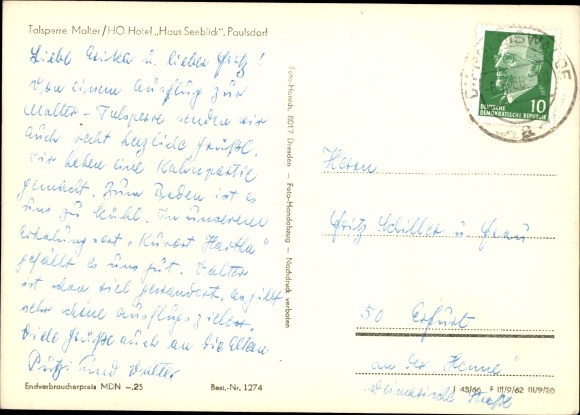 Talsperre Malter/HO Hotel „Haus Seeblick", Paulsdorf
Liebe Erika u. lieber Fritz!
Von einem Ausflug zur
Malter-Talsperre senden wir
Euch recht herzliche Grüße.
Wir haben eine Kahnpartie
gemacht. Zum Baden ist es
uns zu kühl. In unserem
Erholungsort „Kurort Hartha"
gefällt es uns gut. Walter
ist schon viel gewandert, es gibt
sehr schöne Ausflugsziele.
Viele Grüße auch an die Eltern
und
Endverbraucherpreis MDN -.25
Best.-Nr. 1274
Foto-Handabzug – Nachdruck verboten
8017 Dresden
DEUTSCHE
DEMOKRATISCHE REPUBLIK
10
Herrn
Fritz Schiller u. Frau
50 Erfurt
an der Henne
Weimarische Straße
III/9/62